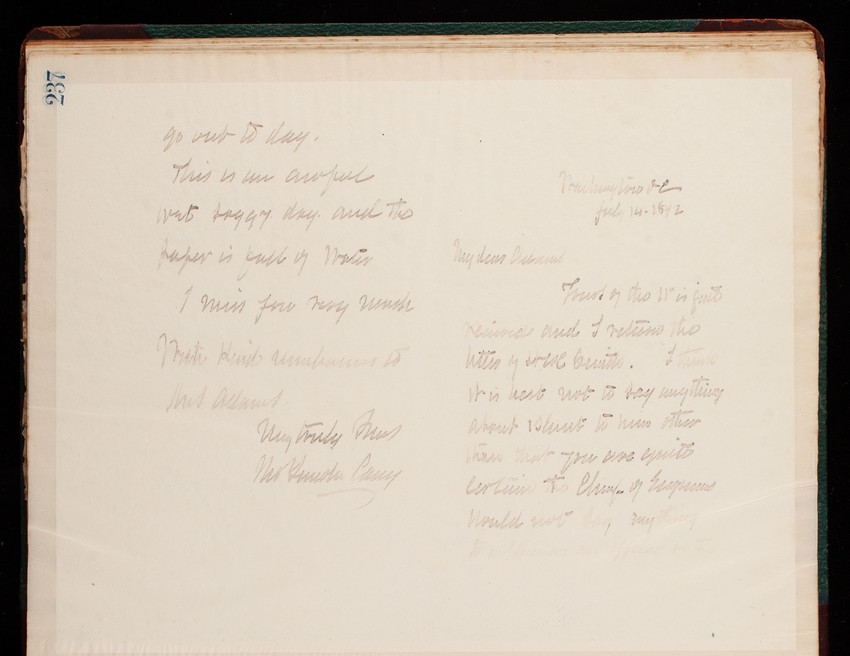 237
go out to day.
This is an awful
wet soggy day and the
paper is full of Water
I miss you very much
With Kind remembrances to
Mrs Adams.
Very truly Yours
Thos Lincoln Casey
Washington D.C.
July 14. 1892
My dear Adams
Yours of the 11th is just
received and I return the
letter of Smith. I think
it is best not to say anything
about to him other
than that you are quite
certain the Chief of Engineers
would not say anything